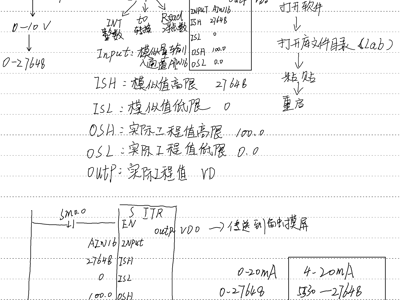 打开软件
INT to Real
整数 转换 实数
INPUT AIN16
ISH 27648
ISL 0
OSH 100.0
OSL 0.0
0-10V
0-27648
打开库文件目录 (Lab)
粘贴
重启
Input: 模拟量输入通道AIN16
ISH: 模拟值高限 27648
ISL: 模拟值低限 0
OSH: 实际工程值高限 100.0
OSL: 实际工程值低限 0.0
OUTP: 实际工程值 VD
SM0.0
S ITR
EN
outp VD0 → 传送到触摸屏
AIN16 INPUT
27648 ISH
0 ISL
100.0 OSH
0-20mA
0-27648
4-20mA
5530-27648